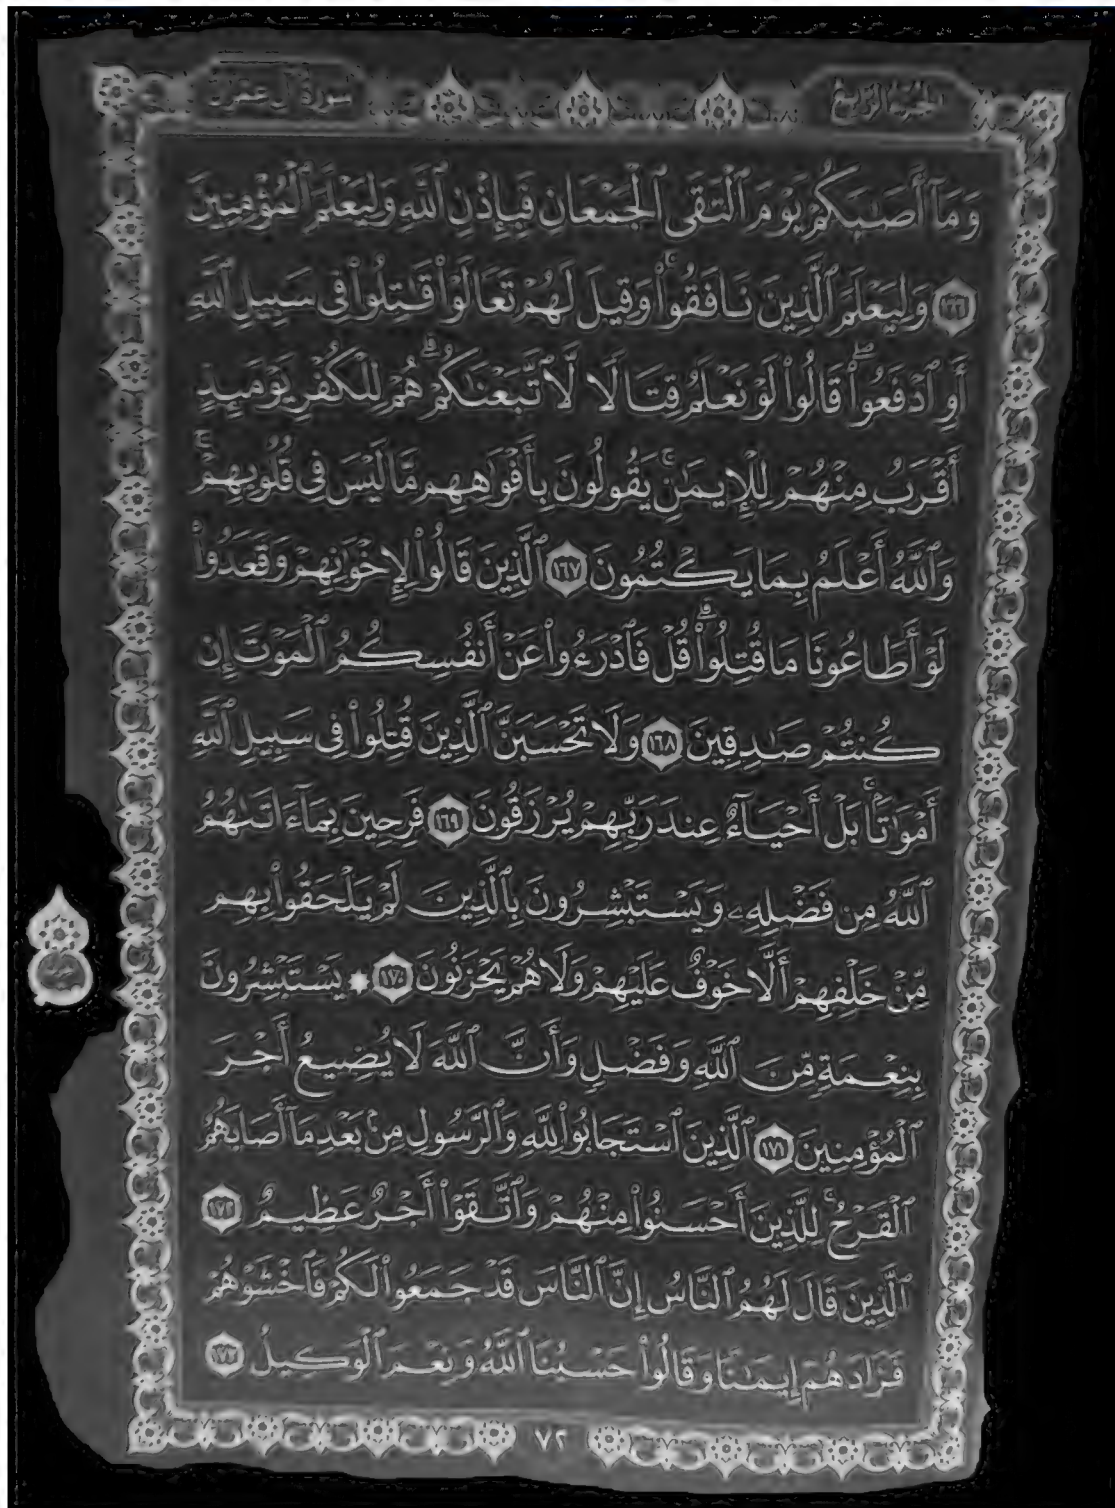 الجزء الرابع
سورة آل عمران
وَمَآ أَصَٰبَكُمْ يَوْمَ ٱلْتَقَى ٱلْجَمْعَانِ فَبِإِذْنِ ٱللَّهِ وَلِيَعْلَمَ ٱلْمُؤْمِنِينَ
١٦٦ وَلِيَعْلَمَ ٱلَّذِينَ نَافَقُوا۟ ۚ وَقِيلَ لَهُمْ تَعَالَوْا۟ قَٰتِلُوا۟ فِى سَبِيلِ ٱللَّهِ
أَوِ ٱدْفَعُوا۟ ۖ قَالُوا۟ لَوْ نَعْلَمُ قِتَالًا لَّٱتَّبَعْنَٰكُمْ ۗ هُمْ لِلْكُفْرِ يَوْمَئِذٍ
أَقْرَبُ مِنْهُمْ لِلْإِيمَٰنِ ۚ يَقُولُونَ بِأَفْوَٰهِهِم مَّا لَيْسَ فِى قُلُوبِهِمْ ۗ
وَٱللَّهُ أَعْلَمُ بِمَا يَكْتُمُونَ ١٦٧ ٱلَّذِينَ قَالُوا۟ لِإِخْوَٰنِهِمْ وَقَعَدُوا۟
لَوْ أَطَاعُونَا مَا قُتِلُوا۟ ۗ قُلْ فَٱدْرَءُوا۟ عَنْ أَنفُسِكُمُ ٱلْمَوْتَ إِن
كُنتُمْ صَٰدِقِينَ ١٦٨ وَلَا تَحْسَبَنَّ ٱلَّذِينَ قُتِلُوا۟ فِى سَبِيلِ ٱللَّهِ
أَمْوَٰتًۢا ۚ بَلْ أَحْيَآءٌ عِندَ رَبِّهِمْ يُرْزَقُونَ ١٦٩ فَرِحِينَ بِمَآ ءَاتَىٰهُمُ
ٱللَّهُ مِن فَضْلِهِۦ وَيَسْتَبْشِرُونَ بِٱلَّذِينَ لَمْ يَلْحَقُوا۟ بِهِم
مِّنْ خَلْفِهِمْ أَلَّا خَوْفٌ عَلَيْهِمْ وَلَا هُمْ يَحْزَنُونَ ١٧٠ ۞ يَسْتَبْشِرُونَ
بِنِعْمَةٍ مِّنَ ٱللَّهِ وَفَضْلٍ وَأَنَّ ٱللَّهَ لَا يُضِيعُ أَجْرَ
ٱلْمُؤْمِنِينَ ١٧١ ٱلَّذِينَ ٱسْتَجَابُوا۟ لِلَّهِ وَٱلرَّسُولِ مِنۢ بَعْدِ مَآ أَصَابَهُمُ
ٱلْقَرْحُ ۚ لِلَّذِينَ أَحْسَنُوا۟ مِنْهُمْ وَٱتَّقَوْا۟ أَجْرٌ عَظِيمٌ ١٧٢
ٱلَّذِينَ قَالَ لَهُمُ ٱلنَّاسُ إِنَّ ٱلنَّاسَ قَدْ جَمَعُوا۟ لَكُمْ فَٱخْشَوْهُمْ
فَزَادَهُمْ إِيمَٰنًا وَقَالُوا۟ حَسْبُنَا ٱللَّهُ وَنِعْمَ ٱلْوَكِيلُ ١٧٣
٧٢